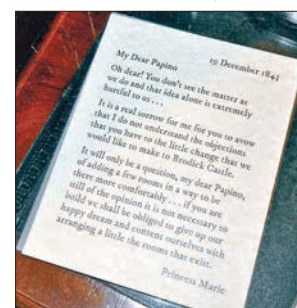 My Dear Papino 19 December 1841
Oh dear! You don't see the matter as
we do and that idea alone is extremely
hurtful to us . . .
It is a real sorrow for me for you to avow
that I do not understand the objections
that you have to the little change that we
would like to make to Brodick Castle.
It will only be a question, my dear Papino,
of adding a few rooms in a way to be
there more comfortably . . . if you are
still of the opinion it is not necessary to
build we shall be obliged to give up our
happy dream and content ourselves with
arranging a little the rooms that exist.
Princess Marie